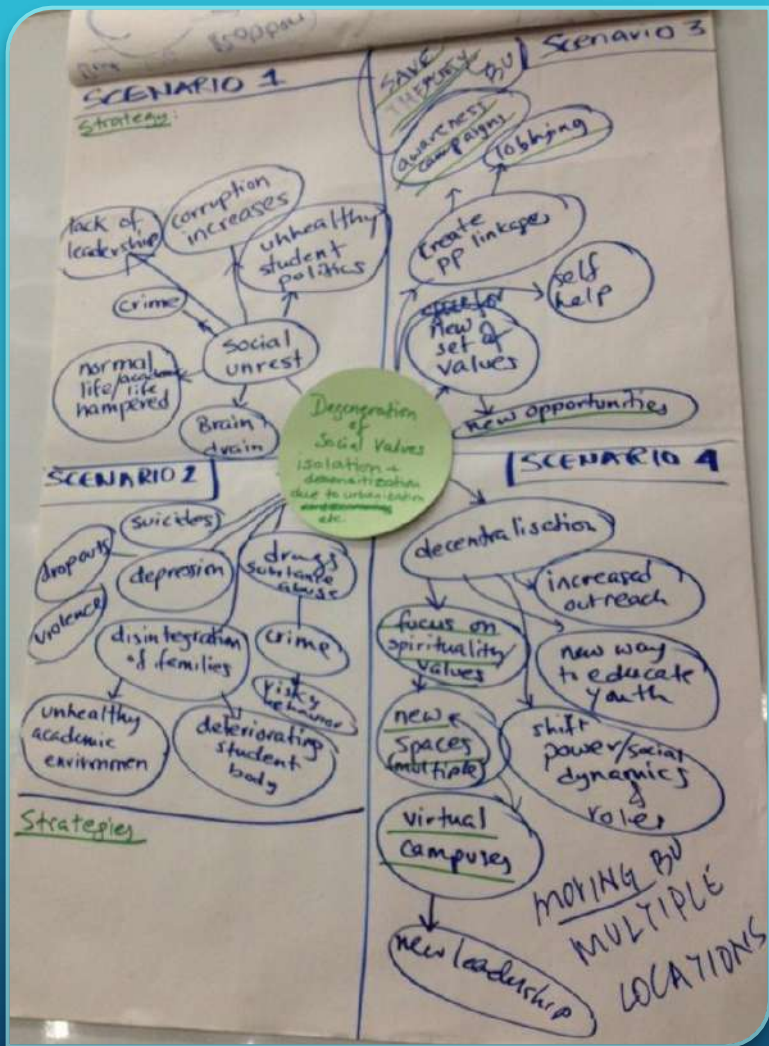 SCENARIO 1
Strategy:
lack of
leadership
corruption
increases
unhealthy
student
politics
crime
social
unrest
normal
life/academic
life
hampered
Brain
drain
Scenario 3
SAVE
BU
awareness
campaigns
lobbying
create
pp linkages
self
help
new
set of
values
new opportunities
Degeneration
of
Social Values
isolation +
desensitization
due to urbanization
etc.
SCENARIO 2
suicides
dropouts
depression
violence
drugs
substance
abuse
disintegration
of families
crime
risky
behavior
unhealthy
academic
envirnmen
deteriorating
student
body
Strategies
SCENARIO 4
decentralisation
increased
outreach
focus on
spirituality/
values
new way
to educate
youth
new
spaces
(multiple)
shift
power/social
dynamics
&
roles
virtual
campuses
new leadership
MOVING BU
MULTIPLE
LOCATIONS